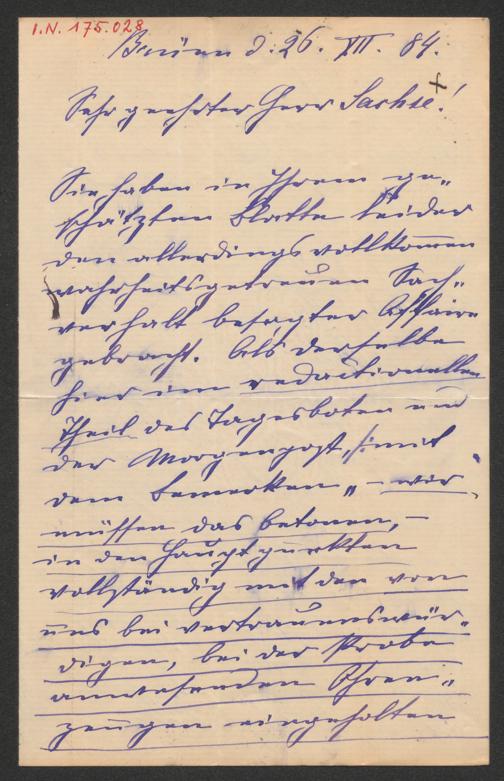 I.N. 175.028
Brünn d. 26. XII. 84.
Sehr geehrter Herr Sachse!
Sie haben in Ihrem ge„
schätzten Blatte leider
den allerdings vollkom̅en
wahrheitsgetreuen Sach„
verhalt besagter Affaire
gebracht. Als derselbe
hier im redactionellen
Theil des Tagesboten und
der Morgenpost, /: mit
dem Bemerken „ – wir
müssen das betonen, –
in den Hauptpunkten
vollständig mit den von
uns bei vertrauenswür„
digen, bei der Probe
anwesenden Ohren„
zeugen eingeholten